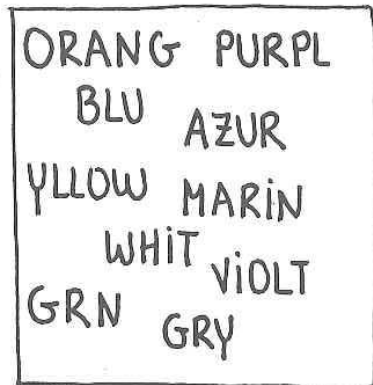 ORANG PURPL
BLU
AZUR
YLLOW MARIN
WHIT
VIOLT
GRN
GRY